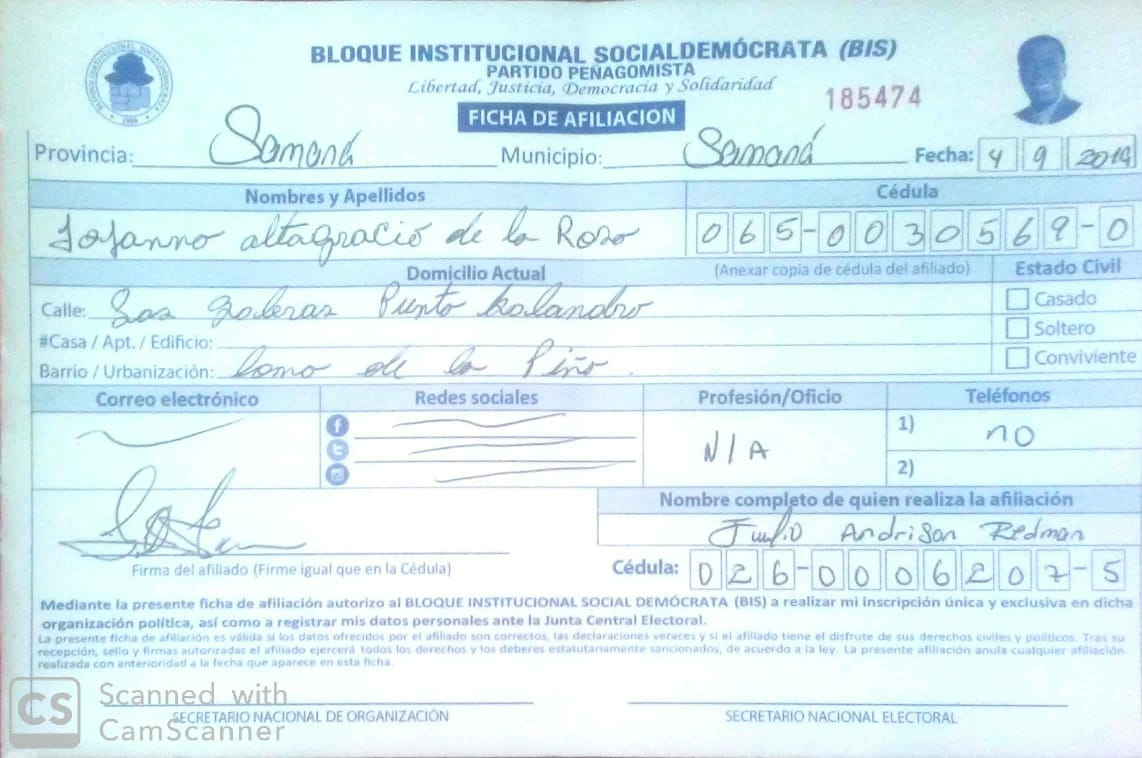 BLOQUE INSTITUCIONAL SOCIALDEMÓCRATA (BIS)
PARTIDO PEÑAGOMISTA
Libertad, Justicia, Democracia y Solidaridad
185474
FICHA DE AFILIACION
Provincia: Samaná Municipio: Samaná Fecha: 4 9 2019
Nombres y Apellidos Cédula
altagracia de la Rosa 065-0030569-0
Domicilio Actual (Anexar copia de cédula del afiliado) Estado Civil
Calle: Las Galeras Punto Balandro Casado
#Casa / Apt. / Edificio: Soltero
Barrio / Urbanización: Loma de la Piña. Conviviente
Correo electrónico Redes sociales Profesión/Oficio Teléfonos
N/A 1) no
2)
Nombre completo de quien realiza la afiliación
Julio Andrison Redman
Firma del afiliado (Firme igual que en la Cédula) Cédula: 026-0006207-5
Mediante la presente ficha de afiliación autorizo al BLOQUE INSTITUCIONAL SOCIAL DEMÓCRATA (BIS) a realizar mi inscripción única y exclusiva en dicha
organización política, así como a registrar mis datos personales ante la Junta Central Electoral.
La presente ficha de afiliación es válida si los datos ofrecidos por el afiliado son correctos, las declaraciones veraces y si el afiliado tiene el disfrute de sus derechos civiles y políticos. Tras su
recepción, sello y firmas autorizadas el afiliado ejercerá todos los derechos y los deberes estatutariamente sancionados, de acuerdo a la ley. La presente afiliación anula cualquier afiliación
realizada con anterioridad a la fecha que aparece en esta ficha.
SECRETARIO NACIONAL DE ORGANIZACIÓN SECRETARIO NACIONAL ELECTORAL
CS Scanned with
CamScanner